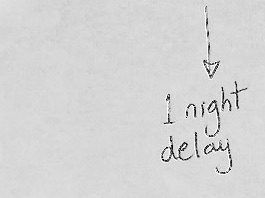 1 night
delay